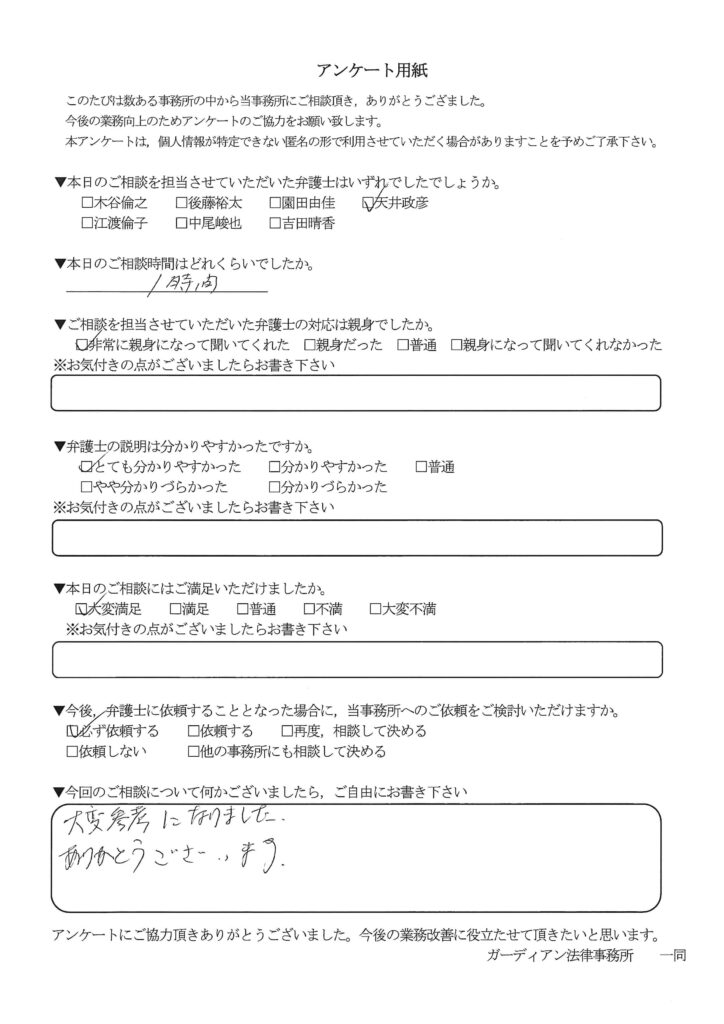 アンケート用紙
このたびは数ある事務所の中から当事務所にご相談頂き，ありがとうござました。
今後の業務向上のためアンケートのご協力をお願い致します。
本アンケートは，個人情報が特定できない匿名の形で利用させていただく場合がありますことを予めご了承下さい。
▼本日のご相談を担当させていただいた弁護士はいずれでしたでしょうか。
□木谷倫之 □後藤裕太 □園田由佳 ☑天井政彦
□江渡倫子 □中尾峻也 □吉田晴香
▼本日のご相談時間はどれくらいでしたか。
1時間
▼ご相談を担当させていただいた弁護士の対応は親身でしたか。
☑非常に親身になって聞いてくれた □親身だった □普通 □親身になって聞いてくれなかった
※お気付きの点がございましたらお書き下さい
▼弁護士の説明は分かりやすかったですか。
☑とても分かりやすかった □分かりやすかった □普通
□やや分かりづらかった □分かりづらかった
※お気付きの点がございましたらお書き下さい
▼本日のご相談にはご満足いただけましたか。
☑大変満足 □満足 □普通 □不満 □大変不満
※お気付きの点がございましたらお書き下さい
▼今後，弁護士に依頼することとなった場合に，当事務所へのご依頼をご検討いただけますか。
☑必ず依頼する □依頼する □再度，相談して決める
□依頼しない □他の事務所にも相談して決める
▼今回のご相談について何かございましたら，ご自由にお書き下さい
大変参考になりました.
ありがとうございます.
アンケートにご協力頂きありがとうございました。今後の業務改善に役立たせて頂きたいと思います。
ガーディアン法律事務所 一同